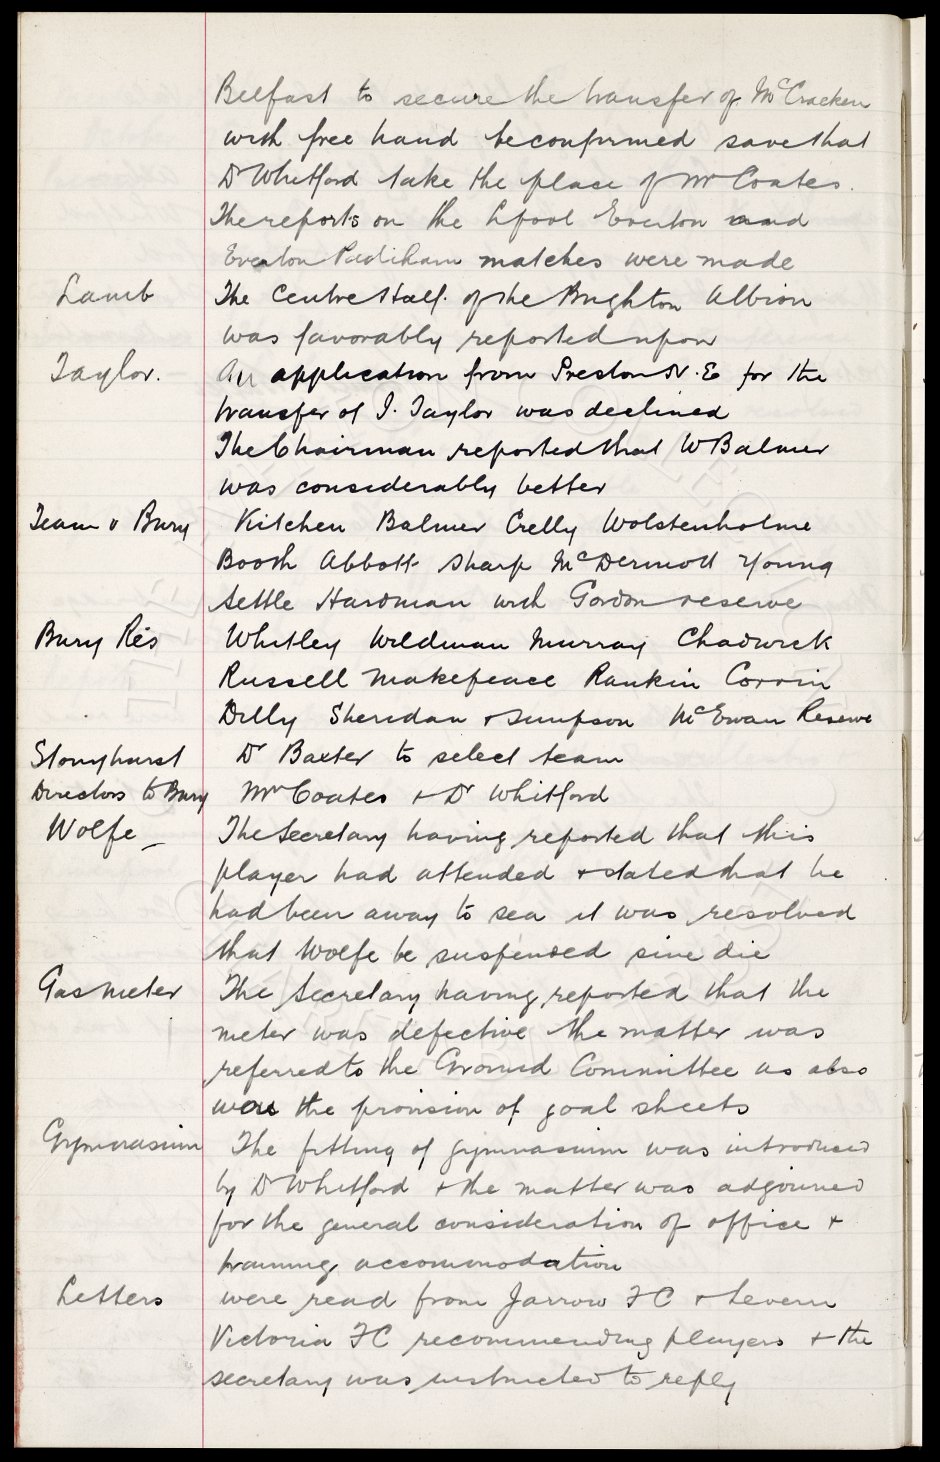 Belfast to secure the transfer of McCracken
with free hand be confirmed save that
Dr Whitford take the place of Mr Coates.
The reports on the Lpool Everton and
Everton Padiham matches were made
Lamb The Centre Half of the Brighton Albion
was favorably reported upon
Taylor. An application from Preston N. E for the
transfer of J. Taylor was declined
The Chairman reported that W Balmer
was considerably better
Team v Bury Kitchen Balmer Crelly Wolstenholme
Booth Abbott Sharp McDermott Young
Settle Hardman with Gordon reserve
Bury Res Whitley Wildman Murray Chadwick
Russell Makepeace Rankin Corrin
Dilly Sheridan + Simpson McEwan Reserve
Stonyhurst Dr Baxter to select team
Directors to Bury Mr Coates + Dr Whitford
Wolfe – The Secretary having reported that this
player had attended + stated that he
had been away to sea it was resolved
that Wolfe be suspended sine die
Gas Meter The Secretary having reported that the
meter was defective the matter was
referred to the Ground Committee as also
were the provision of goal sheets
Gymnasium The fitting of gymnasium was introduced
by Dr Whitford + the matter was adjourned
for the general consideration of office +
training accommodation
Letters were read from Jarrow FC + Severn
Victoria FC recommending players + the
secretary was instructed to reply